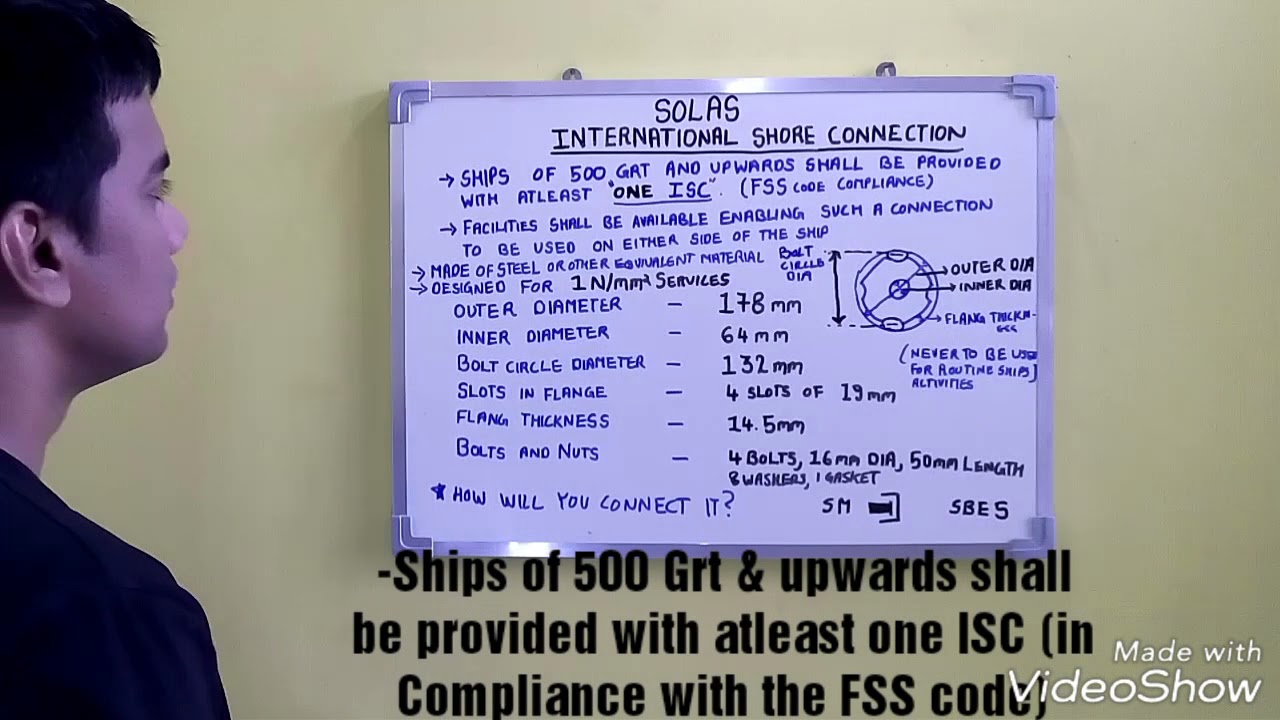 SOLAS
INTERNATIONAL SHORE CONNECTION
→ SHIPS OF 500 GRT AND UPWARDS SHALL BE PROVIDED
WITH ATLEAST "ONE ISC". (FSS CODE COMPLIANCE)
→ FACILITIES SHALL BE AVAILABLE ENABLING SUCH A CONNECTION
TO BE USED ON EITHER SIDE OF THE SHIP
→ MADE OF STEEL OR OTHER EQUIVALENT MATERIAL
→ DESIGNED FOR 1 N/mm² SERVICES
BOLT
CIRCLE
DIA
OUTER DIA
INNER DIA
FLANG THICKN-
ESS
OUTER DIAMETER - 178 mm
INNER DIAMETER - 64 mm
BOLT CIRCLE DIAMETER - 132 mm
SLOTS IN FLANGE - 4 SLOTS OF 19 mm
FLANG THICKNESS - 14.5mm
BOLTS AND NUTS - 4 BOLTS, 16mm DIA, 50mm LENGTH
8 WASHERS, 1 GASKET
(NEVER TO BE USED
FOR ROUTINE SHIPS)
ACTIVITIES
* HOW WILL YOU CONNECT IT?
SM SBES
-Ships of 500 Grt & upwards shall
be provided with atleast one ISC (in
Compliance with the FSS code)
Made with
VideoShow